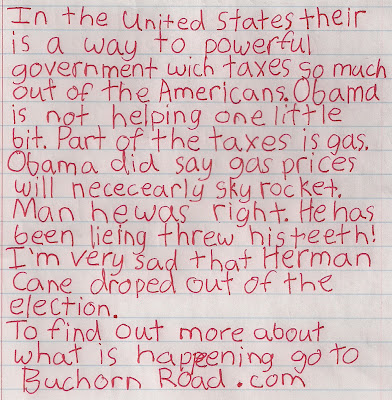 In the United States their
is a way to powerful
government wich taxes so much
out of the Americans. Obama
is not helping one little
bit. Part of the taxes is gas.
Obama did say gas prices
will nececearly sky rocket.
Man he was right. He has
been lieing threw his teeth!
I'm very sad that Herman
Cane droped out of the
election.
To find out more about
what is happening go to
Buchorn Road.com